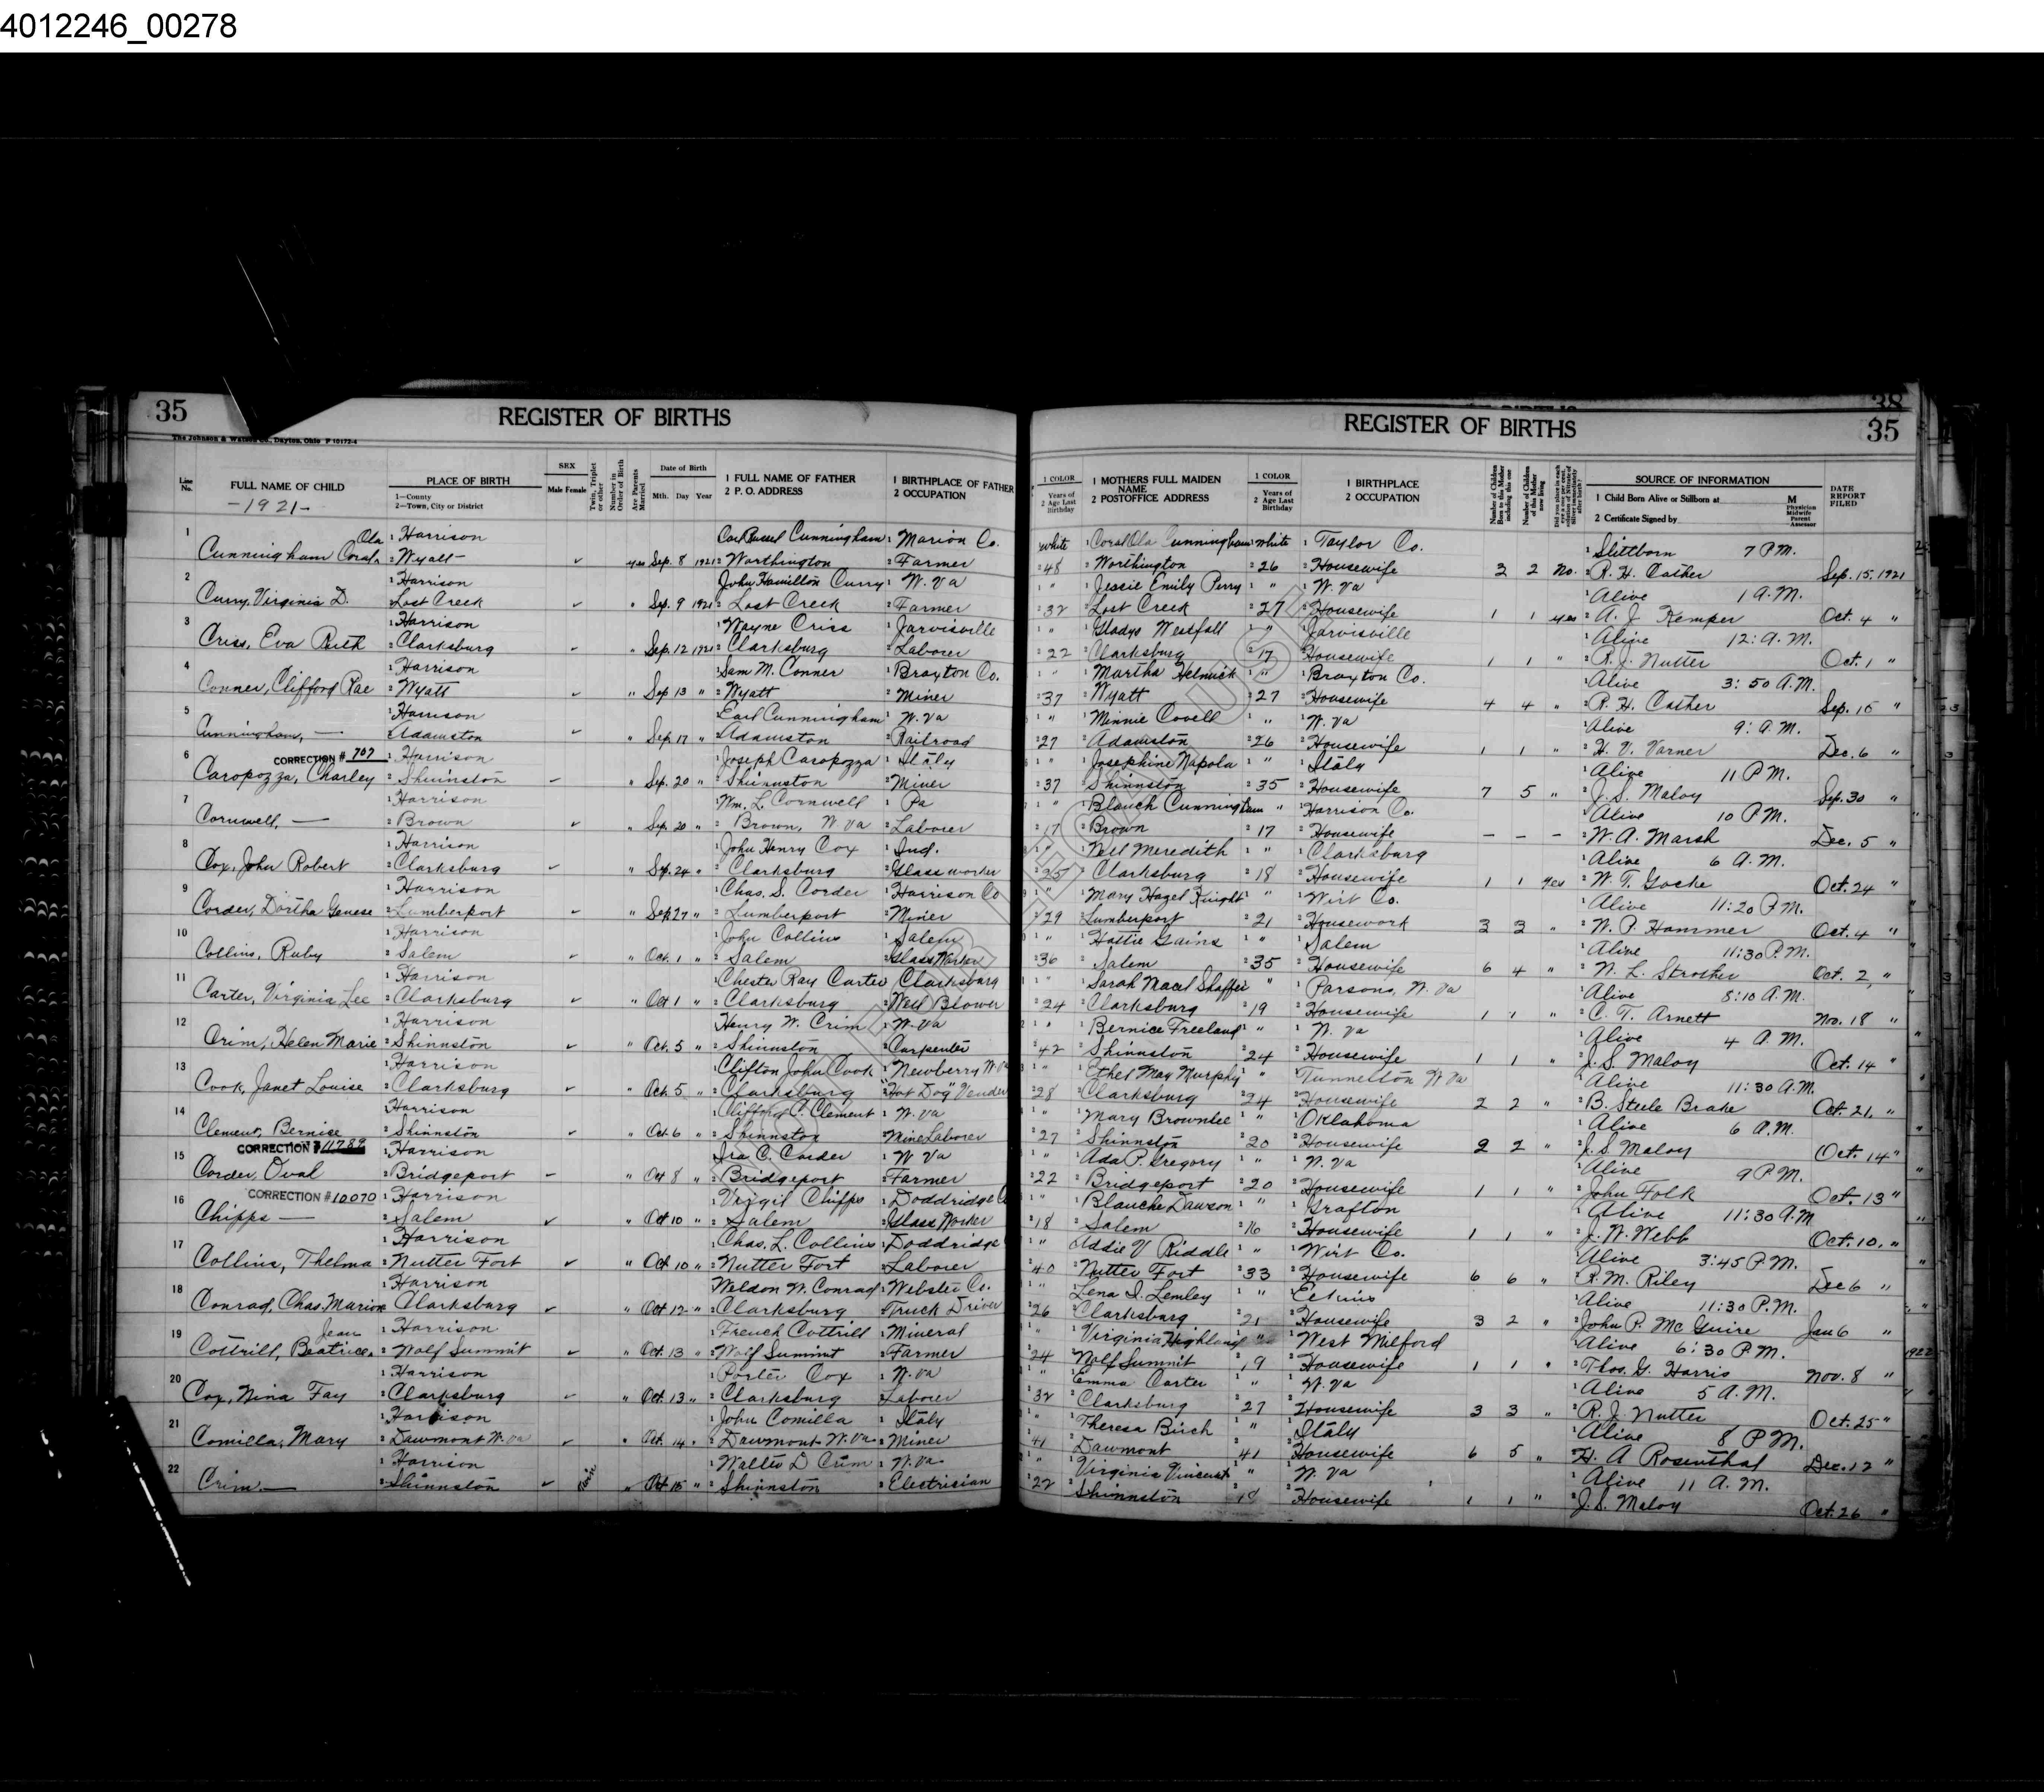 4012246_00278
35 REGISTER OF BIRTHS
38
REGISTER OF BIRTHS 35
The Johnson & Watson Co., Dayton, Ohio P 10172-4
Line No. FULL NAME OF CHILD PLACE OF BIRTH SEX Twin, Triplet or other Number in Order of Birth Are Parents Married Date of Birth 1 FULL NAME OF FATHER 1 BIRTHPLACE OF FATHER 1 COLOR 1 MOTHERS FULL MAIDEN NAME 1 COLOR 1 BIRTHPLACE Number of Children Born to this Mother including this one Number of Children of this Mother now living SOURCE OF INFORMATION DATE REPORT FILED
-1921- 1—County 2—Town, City or District Male Female Mth. Day Year 2 P. O. ADDRESS 2 OCCUPATION 2 Years of Age Last Birthday 2 POSTOFFICE ADDRESS 2 Years of Age Last Birthday 2 OCCUPATION 1 Child Born Alive or Stillborn at M 2 Certificate Signed by Physician Midwife Parent Assessor
1 Ola 1 Harrison Carl Russel Cunningham 1 Marion Co. white 1 Coral Ola Cunningham white 1 Taylor Co. 1 Stillborn 7 P.M.
Cunningham Coral 2 Wyatt ✓ yes Sep. 8 1921 2 Worthington 2 Farmer 2 48 2 Worthington 2 26 2 Housewife 3 2 No. 2 R. H. Cather Sep. 15, 1921
2 1 Harrison John Hamilton Curry 1 W. Va 1 " 1 Jessie Emily Perry 1 " 1 W. Va 1 Alive 1 A.M.
Curry, Virginia D. 2 Lost Creek ✓ " Sep. 9 1921 2 Lost Creek 2 Farmer 2 32 2 Lost Creek 2 27 2 Housewife 1 1 yes 2 A. J. Kemper Oct. 4 "
3 1 Harrison 1 Wayne Criss 1 Jarvisville 1 " 1 Gladys Westfall 1 " 1 Jarvisville 1 Alive 12: A.M.
Criss, Eva Ruth 2 Clarksburg ✓ " Sep. 12 1921 2 Clarksburg 2 Laborer 2 22 2 Clarksburg 2 17 2 Housewife 1 1 " 2 R. J. Nutter Oct. 1 "
4 1 Harrison 1 Sam M. Conner 1 Braxton Co. 1 " 1 Martha Helmick 1 " 1 Braxton Co. 1 Alive 3:50 A.M.
Conner, Clifford Rae 2 Wyatt ✓ " Sep 13 " 2 Wyatt 2 Miner 2 37 2 Wyatt 2 27 2 Housewife 4 4 " 2 R. H. Cather Sep. 15 "
5 1 Harrison 1 Earl Cunningham 1 W. Va 1 " 1 Minnie Covell 1 " 1 W. Va 1 Alive 9: A.M.
Cunningham, — 2 Adamston ✓ " Sep. 17 " 2 Adamston 2 Railroad 2 27 2 Adamston 2 26 2 Housewife 1 1 " 2 H. V. Varner Dec. 6 "
6 CORRECTION # 707 1 Harrison 1 Joseph Caropozza 1 Italy 1 " 1 Josephine Napola 1 " 1 Italy 1 Alive 11 P.M.
Caropozza, Charley 2 Shinnston ✓ " Sep. 20 " 2 Shinnston 2 Miner 2 37 2 Shinnston 2 35 2 Housewife 7 5 " 2 J. S. Maloy Sep. 30 "
7 1 Harrison 1 Wm. L. Cornwell 1 Pa 1 " 1 Blanch Cunningham " 1 Harrison Co. 1 Alive 10 P.M.
Cornwell, — 2 Brown ✓ " Sep. 20 " 2 Brown, W Va 2 Laborer 2 17 2 Brown 2 17 2 Housewife — — — 2 W. A. Marsh Dec. 5 "
8 1 Harrison 1 John Henry Cox 1 Ind. 1 " 1 Nell Meredith 1 " 1 Clarksburg 1 Alive 6 A.M.
Cox, John Robert 2 Clarksburg ✓ " Sep. 24 " 2 Clarksburg 2 Glass worker 2 25 2 Clarksburg 2 18 2 Housewife 1 1 yes 2 W. T. Gocke Oct. 24 "
9 1 Harrison 1 Chas. S. Corder 1 Harrison Co 1 " 1 Mary Hazel Knight 1 " 1 Wirt Co. 1 Alive 11:20 P.M.
Corder, Dortha Genese 2 Lumberport ✓ " Sep 27 " 2 Lumberport 2 Miner 2 29 2 Lumberport 2 21 2 Housework 3 3 " 2 W. P. Hammer Oct. 4 "
10 1 Harrison 1 John Collins 1 Salem 1 " 1 Hattie Gains 1 " 1 Salem 1 Alive 11:30 P.M.
Collins, Ruby 2 Salem ✓ " Oct. 1 " 2 Salem 2 Glass Worker 2 36 2 Salem 2 35 2 Housewife 6 4 " 2 W. L. Strother Oct. 2, "
11 1 Harrison 1 Chester Ray Carter 1 Clarksburg 1 " 1 Sarah Macel Shaffer " 1 Parsons, W. Va 1 Alive 8:10 A.M.
Carter, Virginia Lee 2 Clarksburg ✓ " Oct 1 " 2 Clarksburg 2 Well Blower 2 24 2 Clarksburg 2 19 2 Housewife 1 1 " 2 C. T. Arnett Nov. 18 "
12 1 Harrison Henry W. Crim 1 W. Va 1 " 1 Bernice Freeland 1 " 1 W. Va 1 Alive 4 A.M.
Crim, Helen Marie 2 Shinnston ✓ " Oct. 5 " 2 Shinnston 2 Carpenter 2 42 2 Shinnston 2 24 2 Housewife 1 1 " 2 J. S. Maloy Oct. 14 "
13 1 Harrison 1 Clifton John Cook 1 Newberry W. Va 1 " 1 Ethel May Murphy " 1 Tunnelton W Va 1 Alive 11:30 A.M.
Cook, Janet Louise 2 Clarksburg ✓ " Oct. 5 " 2 Clarksburg 2 "Hot Dog" Vender 2 28 2 Clarksburg 2 24 2 Housewife 2 2 " 2 B. Steele Brake Oct. 21, "
14 1 Harrison 1 Clement 1 W. Va 1 " 1 Mary Brownlee 1 " 1 Oklahoma 1 Alive 6 A.M.
Clement, Bernice 2 Shinnston ✓ " Oct 6 " 2 Shinnston 2 Mine Laborer 2 27 2 Shinnston 2 20 2 Housewife 2 2 " 2 J. S. Maloy Oct. 14 "
15 CORRECTION # 11789 1 Harrison 1 Ira C. Corder 1 W Va 1 " 1 Ada P. Gregory 1 " 1 W. Va 1 Alive 9 P.M.
Corder, Oval 2 Bridgeport ✓ " Oct 8 " 2 Bridgeport 2 Farmer 2 22 2 Bridgeport 2 20 2 Housewife 1 1 " 2 John Folk Oct. 13 "
16 CORRECTION # 10070 1 Harrison 1 Virgil Chipps 1 Doddridge 1 " 1 Blanche Dawson 1 " 1 Grafton 1 Alive 11:30 A.M
Chipps — 2 Salem ✓ " Oct 10 " 2 Salem 2 Glass Worker 2 18 2 Salem 2 16 2 Housewife 1 1 " 2 J. W. Webb Oct. 10, "
17 1 Harrison 1 Chas. L. Collins 1 Doddridge 1 " 1 Addie V Riddle 1 " 1 Wirt Co. Alive 3:45 P.M.
Collins, Thelma 2 Nutter Fort ✓ " Oct 10 " 2 Nutter Fort 2 Laborer 2 40 2 Nutter Fort 2 33 2 Housewife 6 6 " 2 R. M. Riley Dec 6 "
18 1 Harrison Weldon W. Conrad 1 Webster Co. 1 " 1 Lena I. Lemley 1 " 1 Elkins 1 Alive 11:30 P.M.
Conrad, Chas. Marion 2 Clarksburg ✓ " Oct. 12 " 2 Clarksburg 2 Truck Driver 2 26 2 Clarksburg 2 21 2 Housewife 3 2 " 2 John P. McGuire Jan 6 "
19 Jean 1 Harrison 1 French Cottrill 1 Mineral 1 " 1 Virginia Highland " 1 West Milford 1 Alive 6:30 P.M. 1922
Cottrill, Beatrice 2 Wolf Summit ✓ " Oct. 13 " 2 Wolf Summit 2 Farmer 2 24 2 Wolf Summit 2 19 2 Housewife 1 1 " 2 Thos. G. Harris Nov. 8 "
20 1 Harrison 1 Porter Cox 1 W. Va 1 " 1 Emma Carter 1 " 1 W. Va 1 Alive 5 A.M.
Cox, Nina Fay 2 Clarksburg ✓ " Oct. 13 " 2 Clarksburg 2 Laborer 2 32 2 Clarksburg 2 27 2 Housewife 3 3 " 2 R. J. Nutter Oct. 25 "
21 1 Harrison 1 John Comilla 1 Italy 1 " 1 Theresa Birch 1 " 1 Italy 1 Alive 8 P.M.
Comilla, Mary 2 Dawmont W. Va ✓ " Oct. 14 " 2 Dawmont W. Va 2 Miner 2 41 2 Dawmont 2 41 2 Housewife 6 5 " 2 H. A Rosenthal Dec. 12 "
22 1 Harrison 1 Walter D Crim 1 W. Va 1 " 1 Virginia Vincent 1 " 1 W. Va 1 Alive 11 A.M.
Crim — 2 Shinnston ✓ " Oct 15 " 2 Shinnston 2 Electrician 2 22 2 Shinnston 2 Housewife 1 1 " 2 J. S. Maloy Oct. 26 "